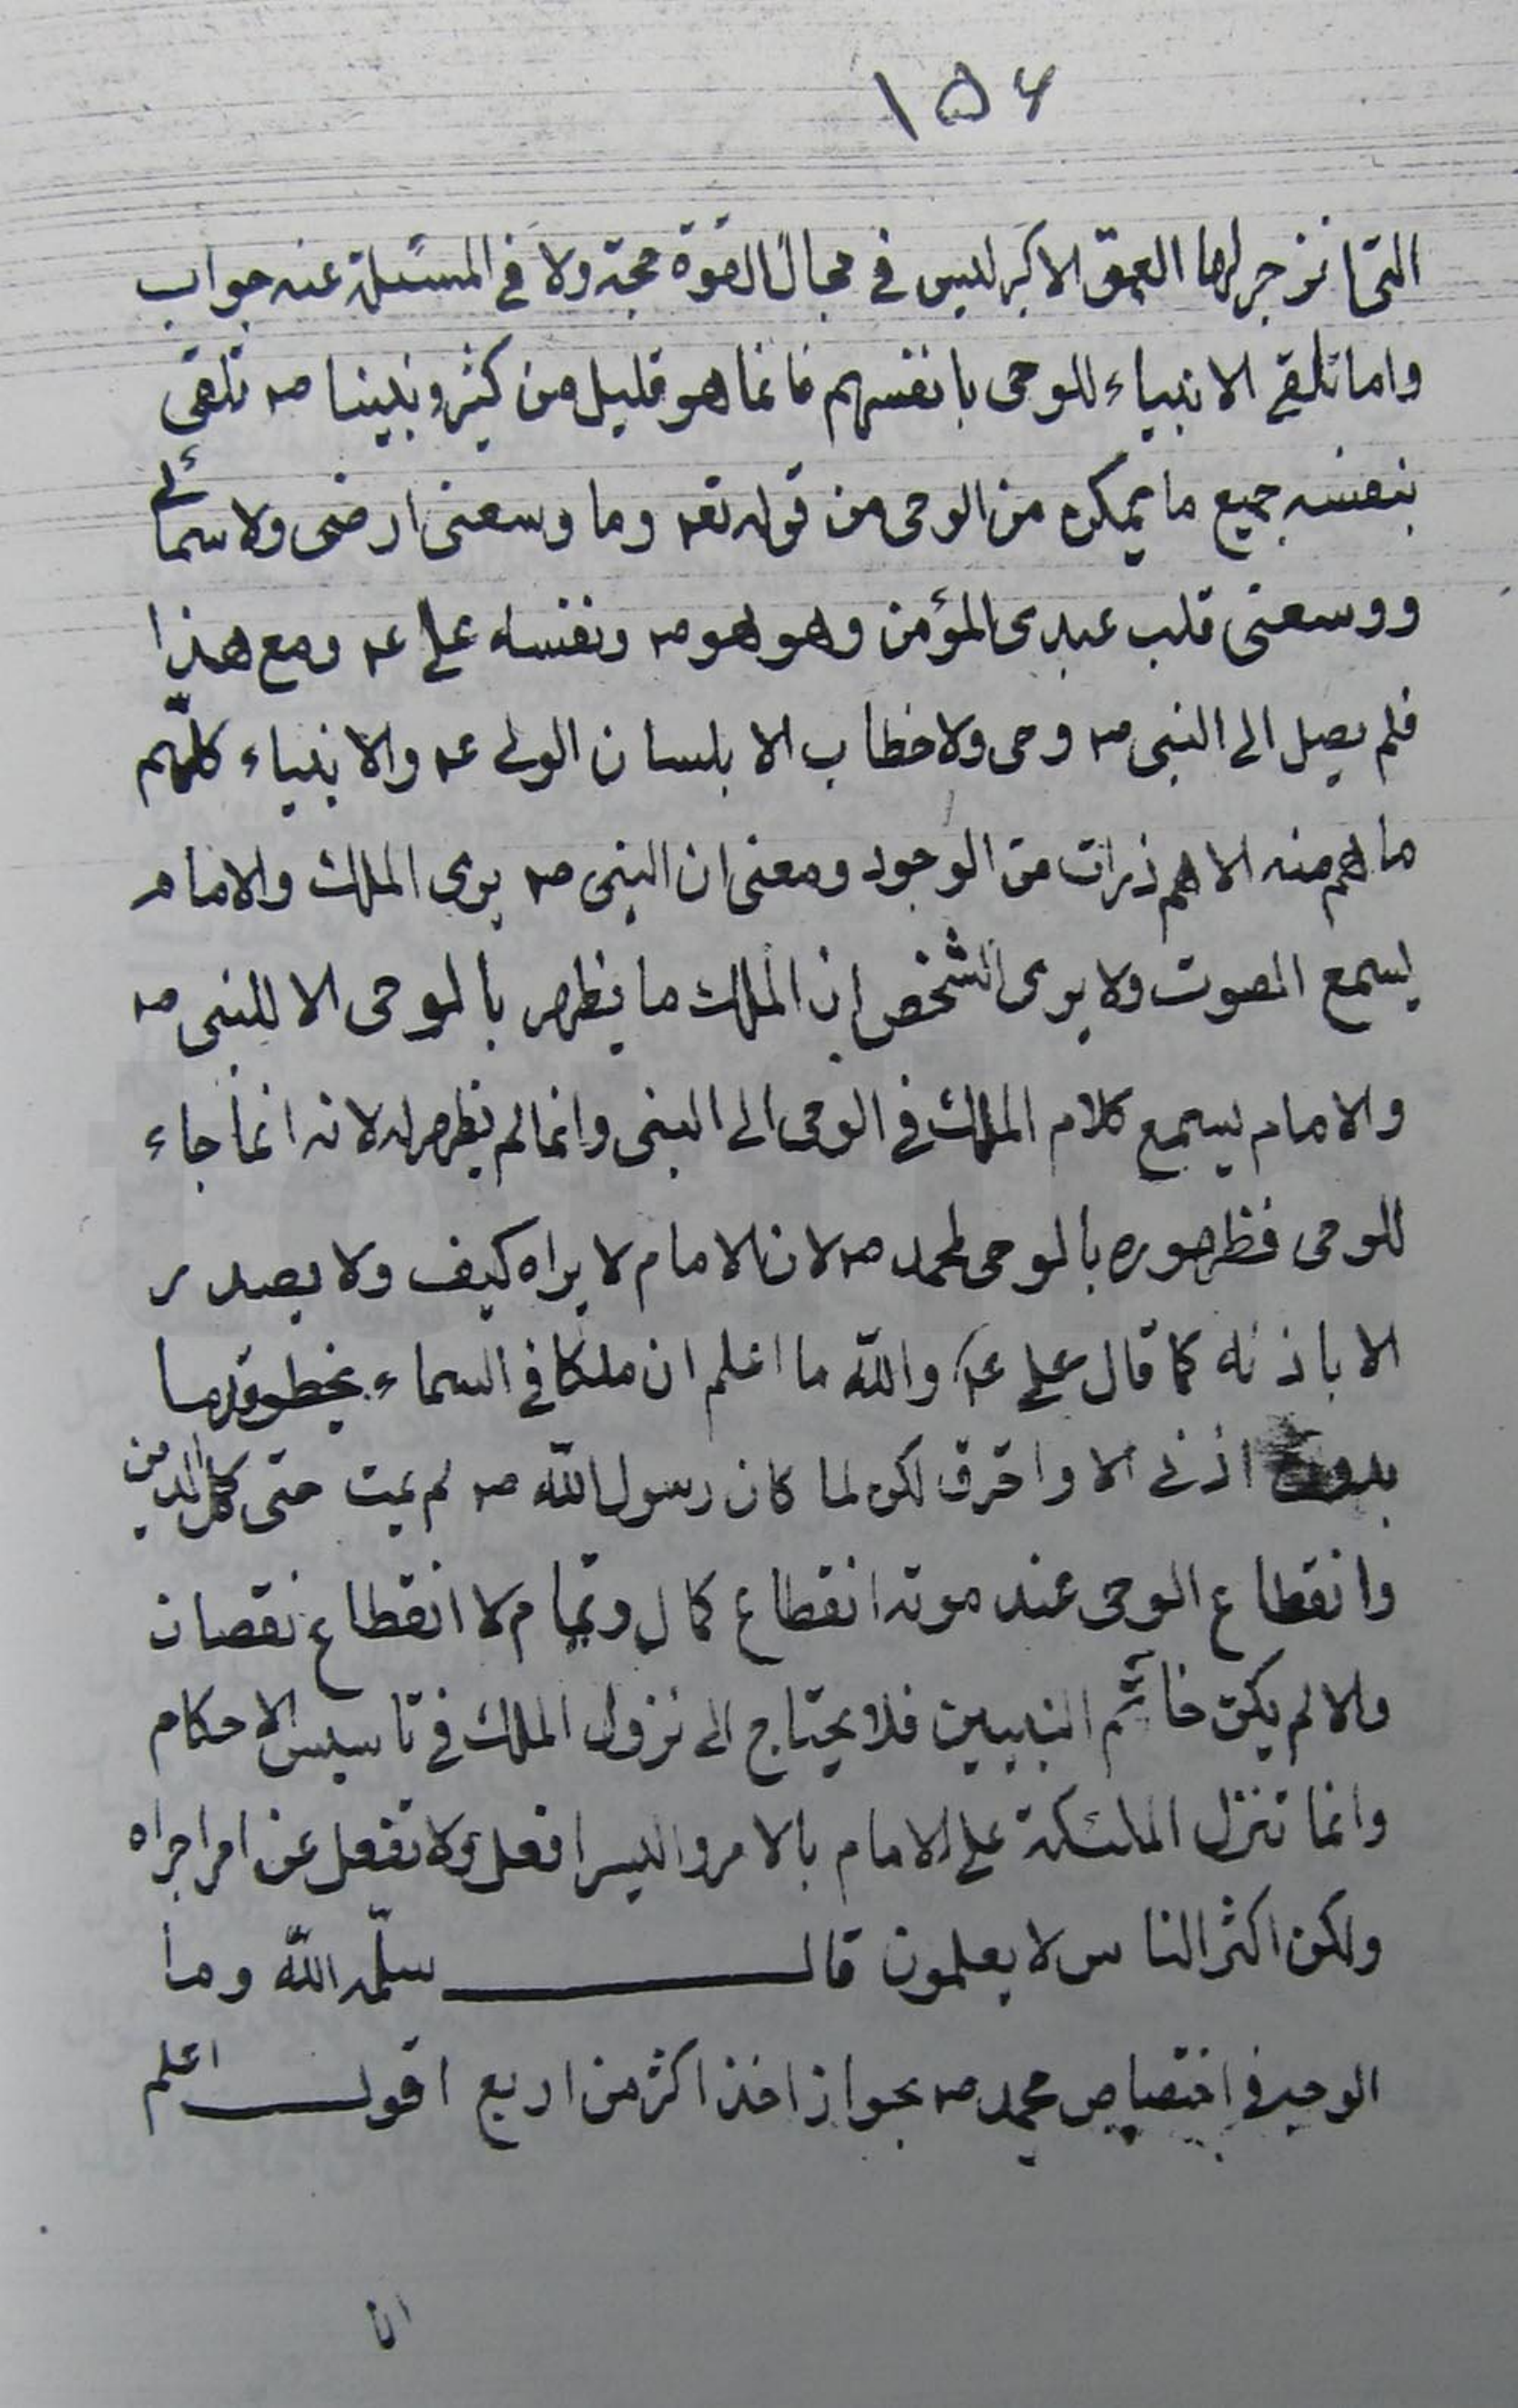 ١٥٤
التى انزجر لها العمق الاكبر ليس في مجال القوة حجة ولا في المسئلة عنه جواب
واما تلقى الانبياء للوحى بانفسهم فانما هو قليل من كثير ونبينا صه تلقى
بنفسه جميع ما يمكن من الوحى من قوله تعه وما وسعنى ارضى ولا سمائى
ووسعنى قلب عبدى المؤمن وهو هو صه ونفسه على عه ومع هذا
فلم يصل الى النبى صه وحى ولا خطاب الا بلسان الولى عه والانبياء كلّهم
ما هم منه الا هم ذرات من الوجود ومعنى ان النبى صه يرى الملك والامام
يسمع الصوت ولا يرى الشخص ان الملك ما يظهر بالوحى الا للنبى صه
والامام يسمع كلام الملك في الوحى الى النبى وانما لم يظهر له لانه انما جاء
للوحى فظهوره بالوحى لمحمد صه لا ان الامام لا يراه كيف ولا يصدر
الا باذنه كما قال على عه والله ما اعلم ان ملكا في السماء يخطو قدما
بدون اذنى الا واحترق لكن لما كان رسول الله صه لم يمت حتى كمل الدين
وانقطاع الوحى عند موته انقطاع كمال وتمام لا انقطاع نقصان
والا لم يكن خاتم النبيين فلا يحتاج الى نزول الملك في تاسيس الاحكام
وانما تنزل الملئكة على الامام بالامر واليسر افعل ولا تفعل عن امر اجراه
ولكن اكثر الناس لا يعلمون قال سلّمه الله وما
الوجه في اختصاص محمد صه بجواز اخذ اكثر من اربع اقول اعلم
ان